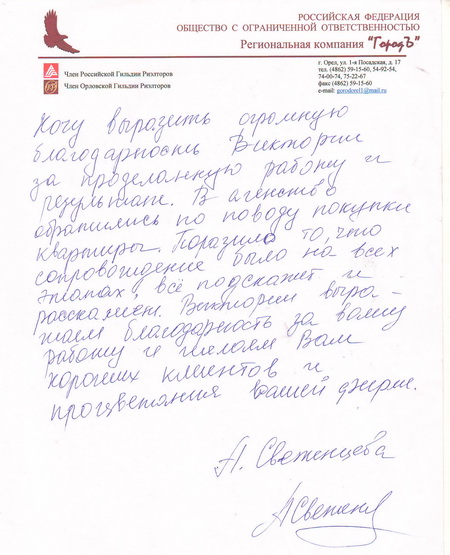 РОССИЙСКАЯ ФЕДЕРАЦИЯ
ОБЩЕСТВО С ОГРАНИЧЕННОЙ ОТВЕТСТВЕННОСТЬЮ
Региональная компания "ГородЪ"
Член Российской Гильдии Риэлторов
Член Орловской Гильдии Риэлторов
г. Орел, ул. 1-я Посадская, д. 17
тел. (4862) 59-15-60, 54-92-54,
74-00-74, 75-22-67
факс (4862) 59-15-60
e-mail: gorodorel1@mail.ru
Хочу выразить огромную
благодарность Виктории
за проделанную работу и
результат. В агенство
обратились по поводу покупки
квартиры. Поразило то, что
сопровождение было на всех
этапах, всё подскажет и
расскажет. Виктории выра-
жаем благодарность за вашу
работу и желаем Вам
хороших клиентов и
процветания вашей фирме.
А. Свеженцева